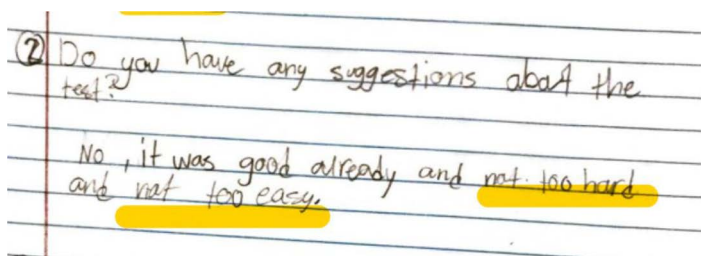 ② Do you have any suggestions about the
test?
No, it was good already and not too hard
and not too easy.